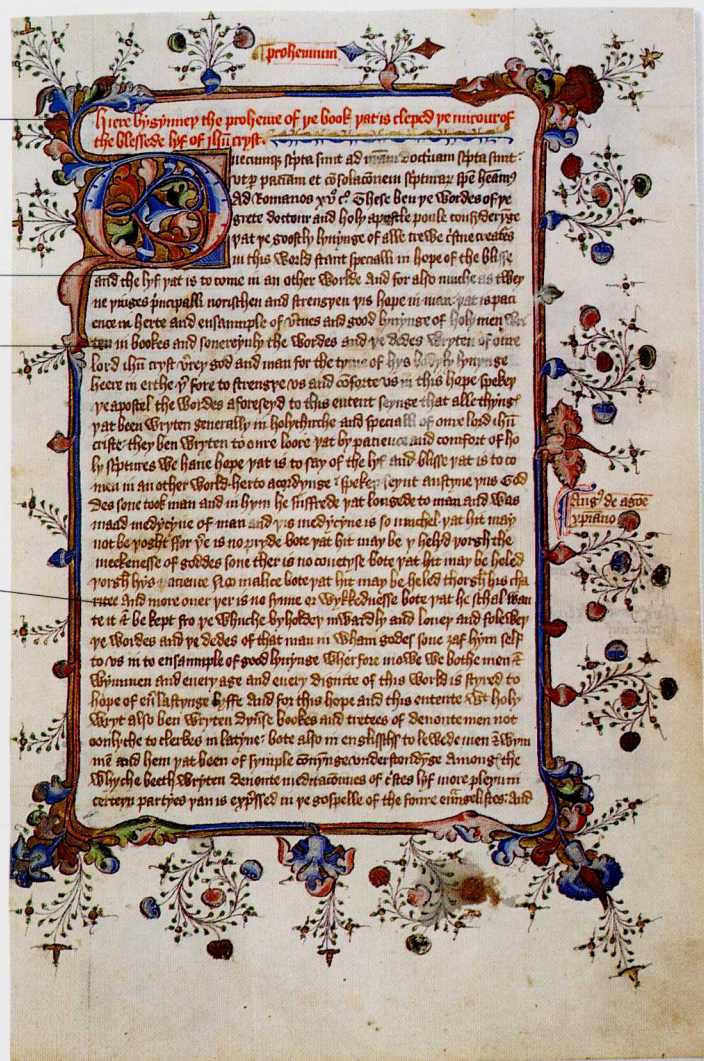 prohemium
Here bygynney the proheme of ye book yat is cleped ye mirour of
the blessede lyf of ihū cryst.
Quecumq; scpta sunt ad nram doctinam scpta sunt
vt p pacīam et cōsolacōnem scpturar spē heamꝰ
ad Romanos xvᵒ cᵒ These ben ye Wordes of ye
grete doctour and holy apostle poule consyderyge
yat ye gostly lyuynge of alle trewe cstne creates
in this World stant specialli in hope of the blisse
and the lyf yat is to come in an other Worlde And for also muche as tweY
ne yinges pncipalli norischen and strengyen yis hope in man yat is paci
ence in herte and ensaumple of vtues and good lyuynge of holy men Wri
ten in bookes and souereynly the Wordes and ye dedes Wryten of oure
lord ihū cryst verey god and man for the tyme of hys bodyly lyuynge
heere in erthe yfore to strengye vs and cōforte vs in this hope spekey
ye apostel the Wordes aforeseyd to this entent seynge that alle thyngꝭ
yat been Wryten generally in holychirche and specialli of oure lord ihū
criste they ben Wryten to oure loore yat by pacience and comfort of ho
ly scptures We haue hope yat is to say of the lyf and blisse yat is to co
men in an other World. herto acordynge spekey seynt austyne yus God
des sone took man and in hym he suffrede yat longede to man and Was
maad medycyne of man and yis medycyne is so muchel yat hit may
not be yoght ffor ye is no pryde bote yat hit may be y helyd yorgh the
mekenesse of goddes sone ther is no coueityse bote yat hit may be heled
yorgh hys pacience No malice bote yat hit may be heled thorgh his cha
ritee And more ouer yer is no synne or Wykkednesse bote yat he schal wan
te it & be kept fro ye Whuche byholdey inwardly and louey and foleWey
ye Wordes and ye dedes of that man in Wham godes sone ȝaf hym self
to vs in to ensaumple of good lyuynge Wherfore nowe We bothe men &
Wymmen and euery age and euery dignite of this World is styred to
hope of eūlastynge lyffe And for this hope and this entente Wt holy
Wryt also ben Wryten dyūse bookes and tretees of deuoute men not
oonlyche to clerkes in latyne bote also in englissch to lewede men & Wym
mē and hem yat been of symple conynge vnderstondyge Among the
Whyche beeth Wryten deuoute meditacouns of cstes lyf more pleyn in
certeyn partyes yan is expssed in ye gospelle of the foure euangelistes And
Augꝰ de agoe
xpiano